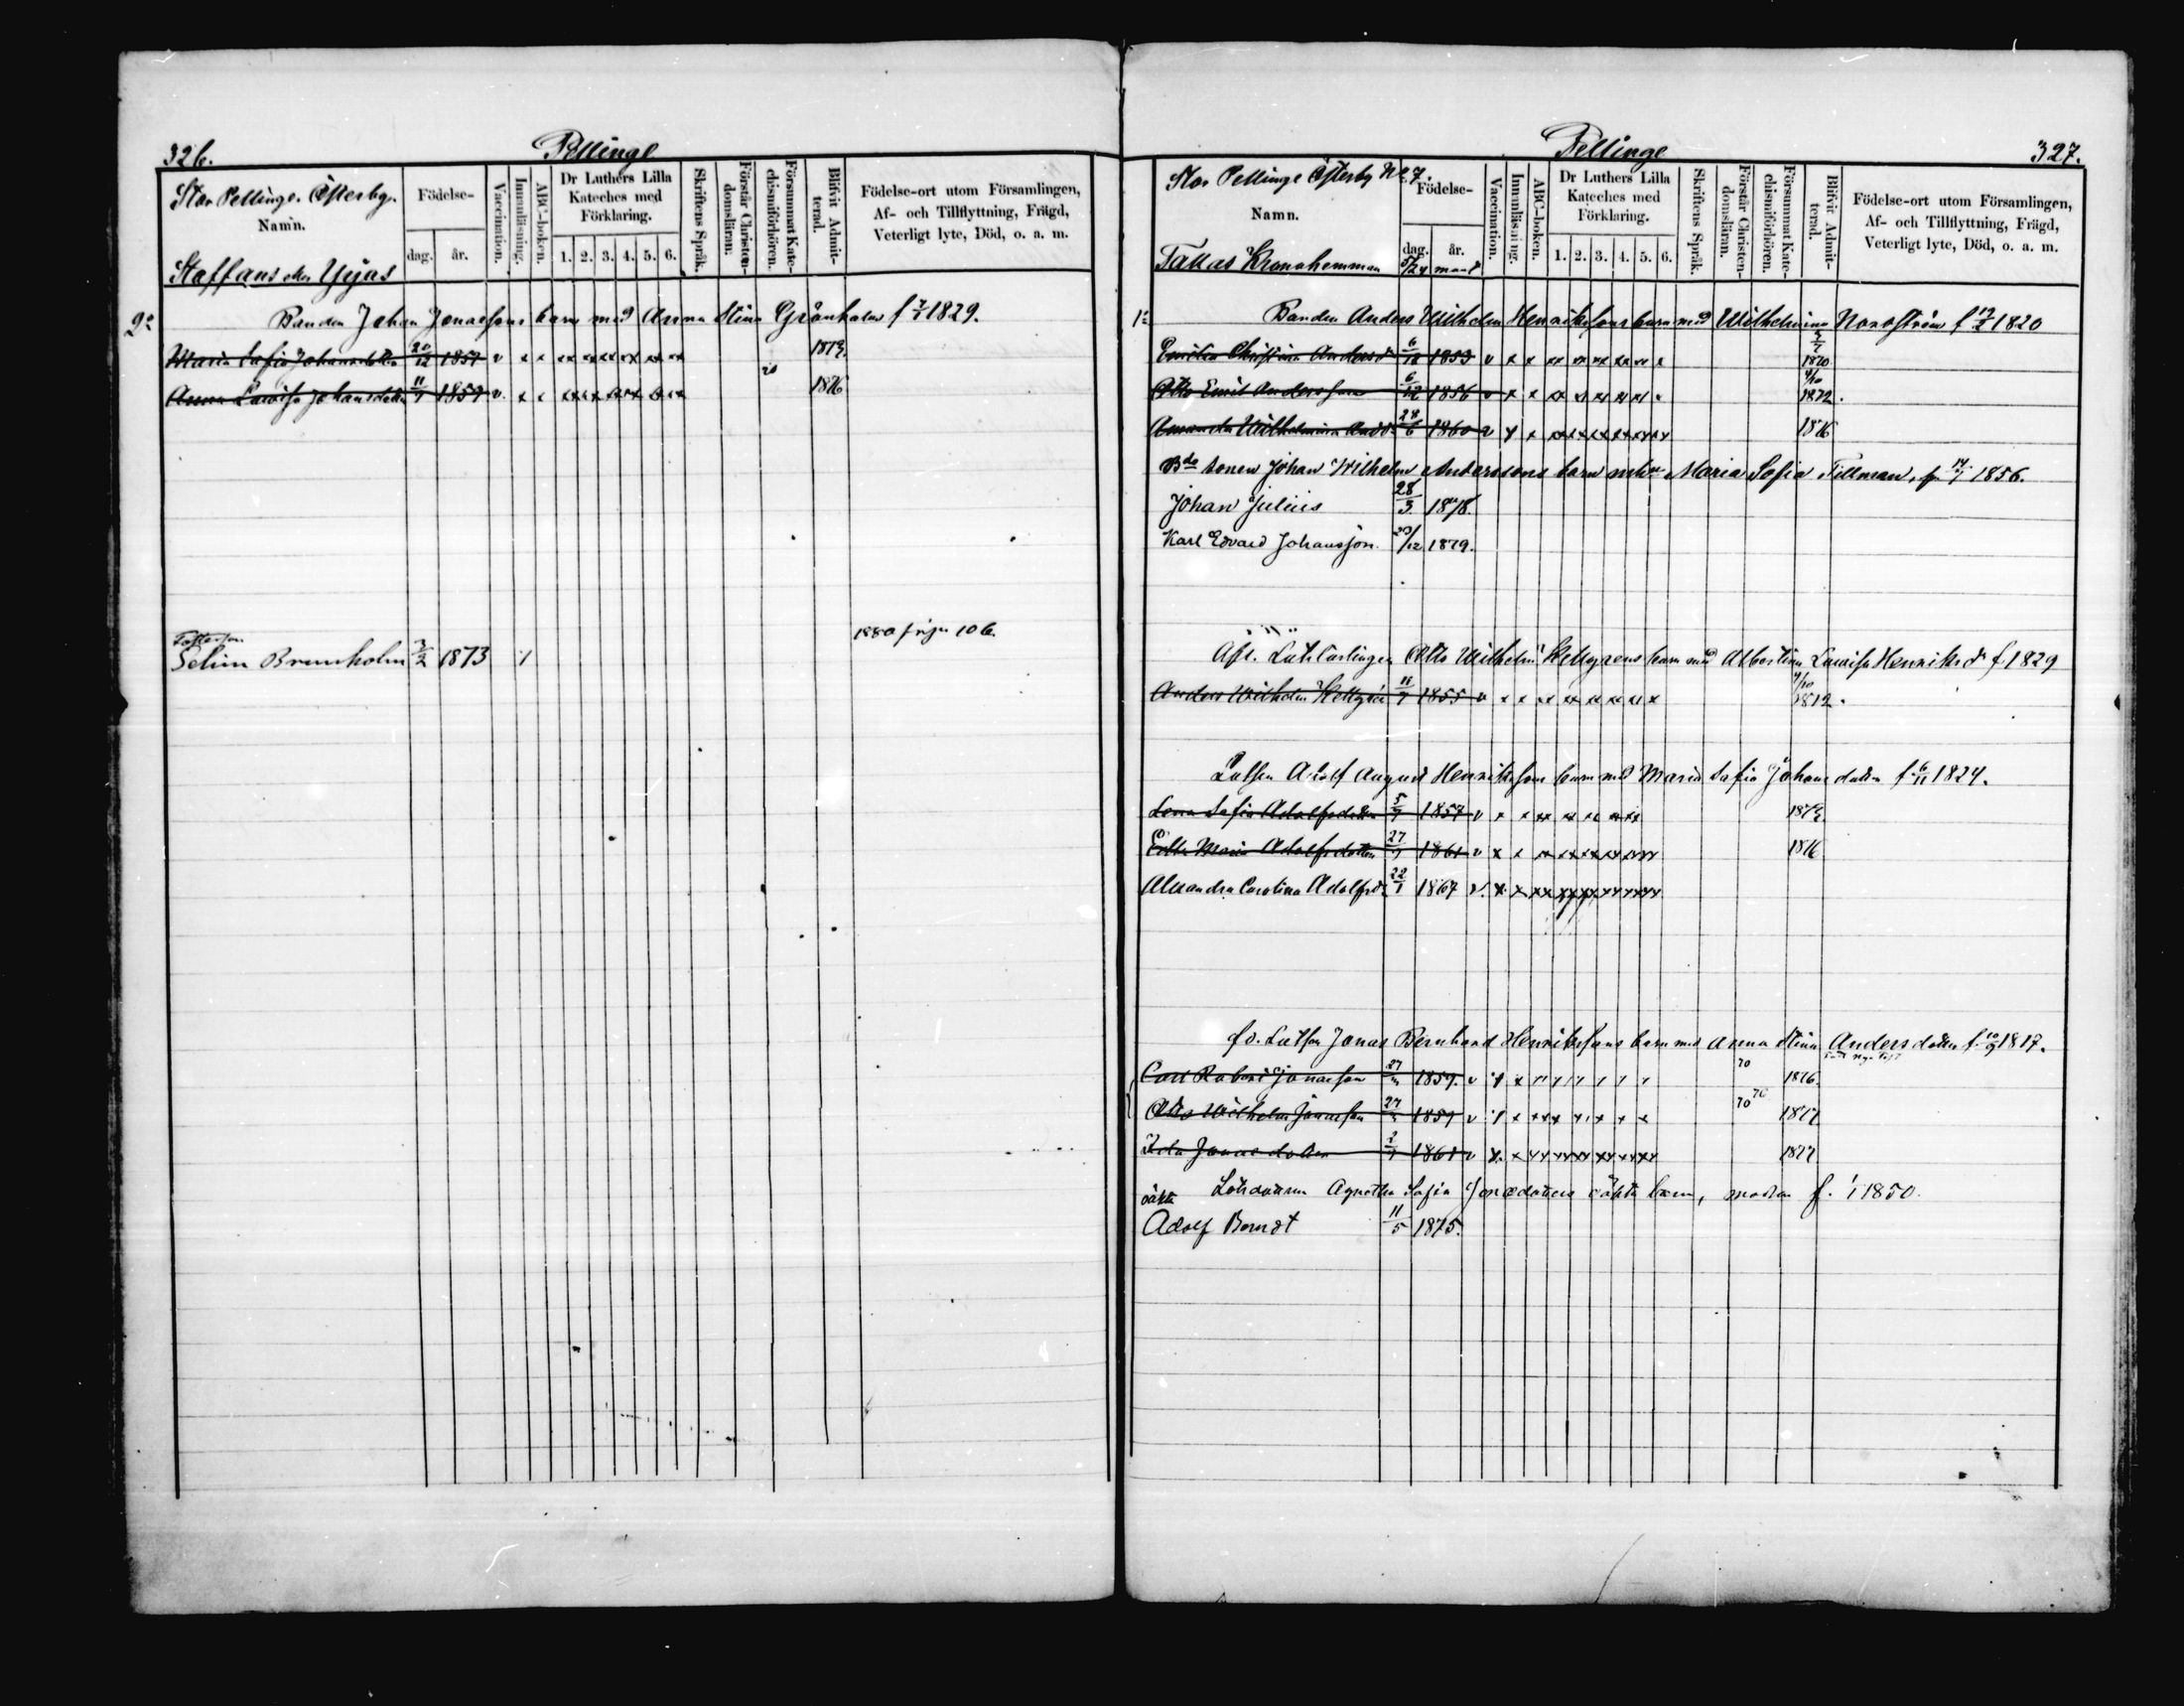 326.
Pellinge
Stor Pellinge. Österby.
Namn.
Staffans eller Yrjas
Födelse-
dag. år.
Vaccination.
Innanläsning.
ABC-boken.
Dr Luthers Lilla Kateches med Förklaring.
1. 2. 3. 4. 5. 6.
Skriftens Språk.
Förstår Christendomsläran.
Försummat Katechismiförhören.
Blifvit Admitterad.
Födelse-ort utom Församlingen, Af- och Tillflyttning, Frägd, Veterligt lyte, Död, o. a. m.
2o Bonden Johan Jonassons barn med Anna Stina Grönholm f 7/1 1829.
Maria Sofia Johansdotter 20/12 1857 v x x xx xx xx xx xx 1873.
Anna Lovisa Johansdotter 11/7 1859 v. x x xx xx xx xx xx 1876
1880 frijn 106.
Fosterson
Selim Brunholm 7/2 1873 1
Pellinge
327.
Stor Pellinge Österby No 7.
Namn.
Tallas Kronohemman 5/24 mant
Födelse-
dag. år.
Vaccination.
Innanläsning.
ABC-boken.
Dr Luthers Lilla Kateches med Förklaring.
1. 2. 3. 4. 5. 6.
Skriftens Språk.
Förstår Christendomsläran.
Försummat Katechismiförhören.
Blifvit Admitterad.
Födelse-ort utom Församlingen, Af- och Tillflyttning, Frägd, Veterligt lyte, Död, o. a. m.
1o Bonden Anders Wilhelm Henrikssons barn med Wilhelmina Nordström f 1820
Emilia Christina Andersdr 6/12 1853 v x x xx xx xx xx xx x 1870
Otto Emil Andersson 6/12 1856 v x x xx xx xx xx xx x 4/10 1872.
Amanda Wilhelmina Andd. 28/6 1860 v x x xx xx xx xx xx 1876
Bde sonen Johan Wilhelm Anderssons barn mhu Maria Sofia Tillman, f. 14/7 1856.
Johan Julius 28/3 1878.
Karl Edvard Johansson. 20/12 1879.
Afl. Lotslärlingen Otto Wilhelm Kellgrens barn med Albertina Lovisa Henriksdr f. 1829
Anders Wilhelm Kellgren 11/7 1855 v x x xx xx xx xx xx x 4/10 1872.
Lotsen Adolf August Henrikssons barn med Maria Sofia Johansdotter f. 6/11 1824.
Lena Sofia Adolfsdotter 5/7 1857 v x x xx xx xx xx 1873.
Edla Maria Adolfsdotter 27/7 1861 v x x xx xx xx xx xx 1876
Alexandra Carolina Adolfsd. 22/1 1867 v. x x xx xx xx xx xx
fd. Lotsen Jonas Bernhard Henrikssons barn med Anna Stina Andersdotter f. 1817.
Carl Robert Jonasson 27/ 1859. v 1876.
Otto Wilhelm Jonasson 27/ 1859 v 70 1877
Ida Jonasdotter 1861 v x. x xx xx xx xx xx 1877
Lötsdottern Agnetha Sofia Jonædotters oäkta barn, modren f. 1/1 1850.
oäkta
Adolf Berndt 11/5 1875.